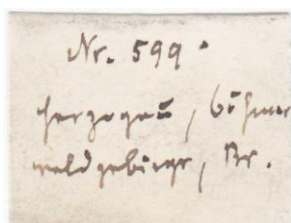 Nr. 599.
Herzogau, Böhmer
waldgebirge, Br.